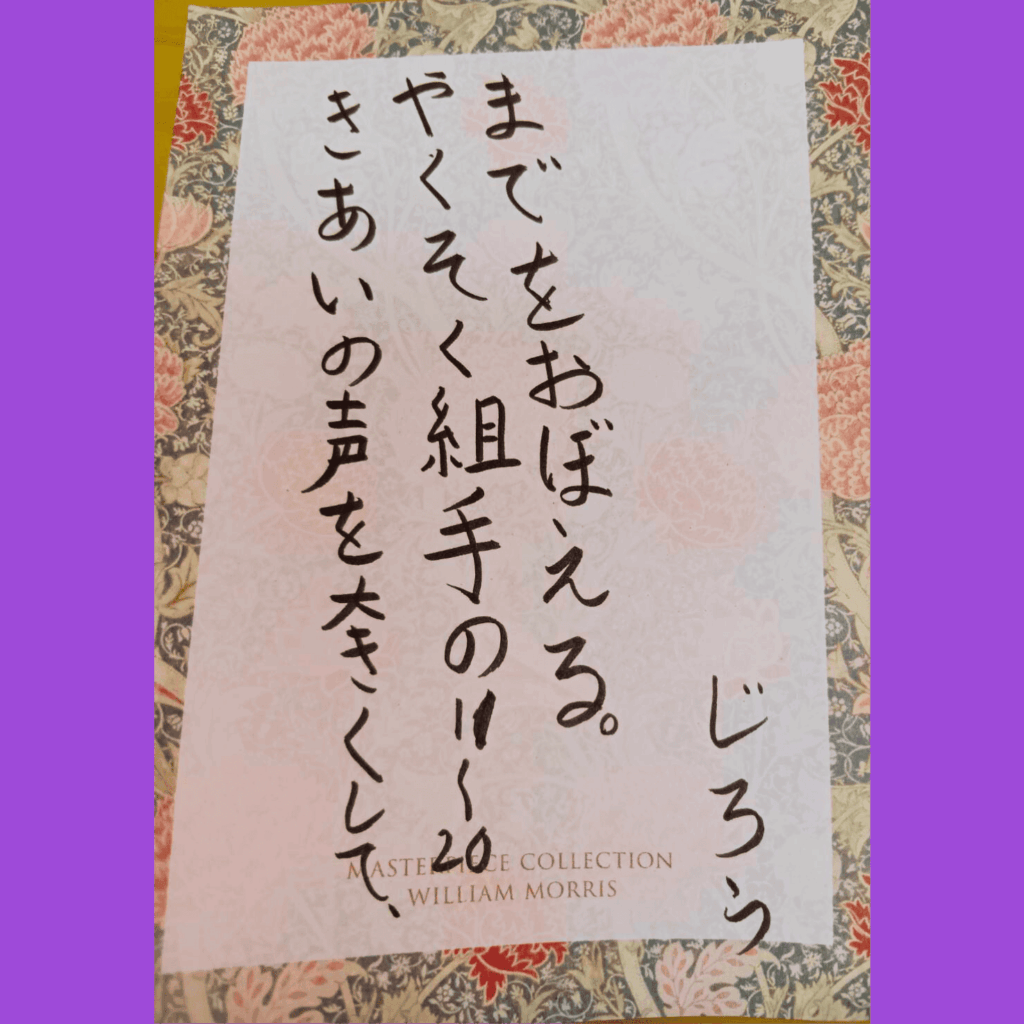 きあいの声を大きくして、
やくそく組手の11〜20
までをおぼえる。
じろう
MASTERPIECE COLLECTION
WILLIAM MORRIS